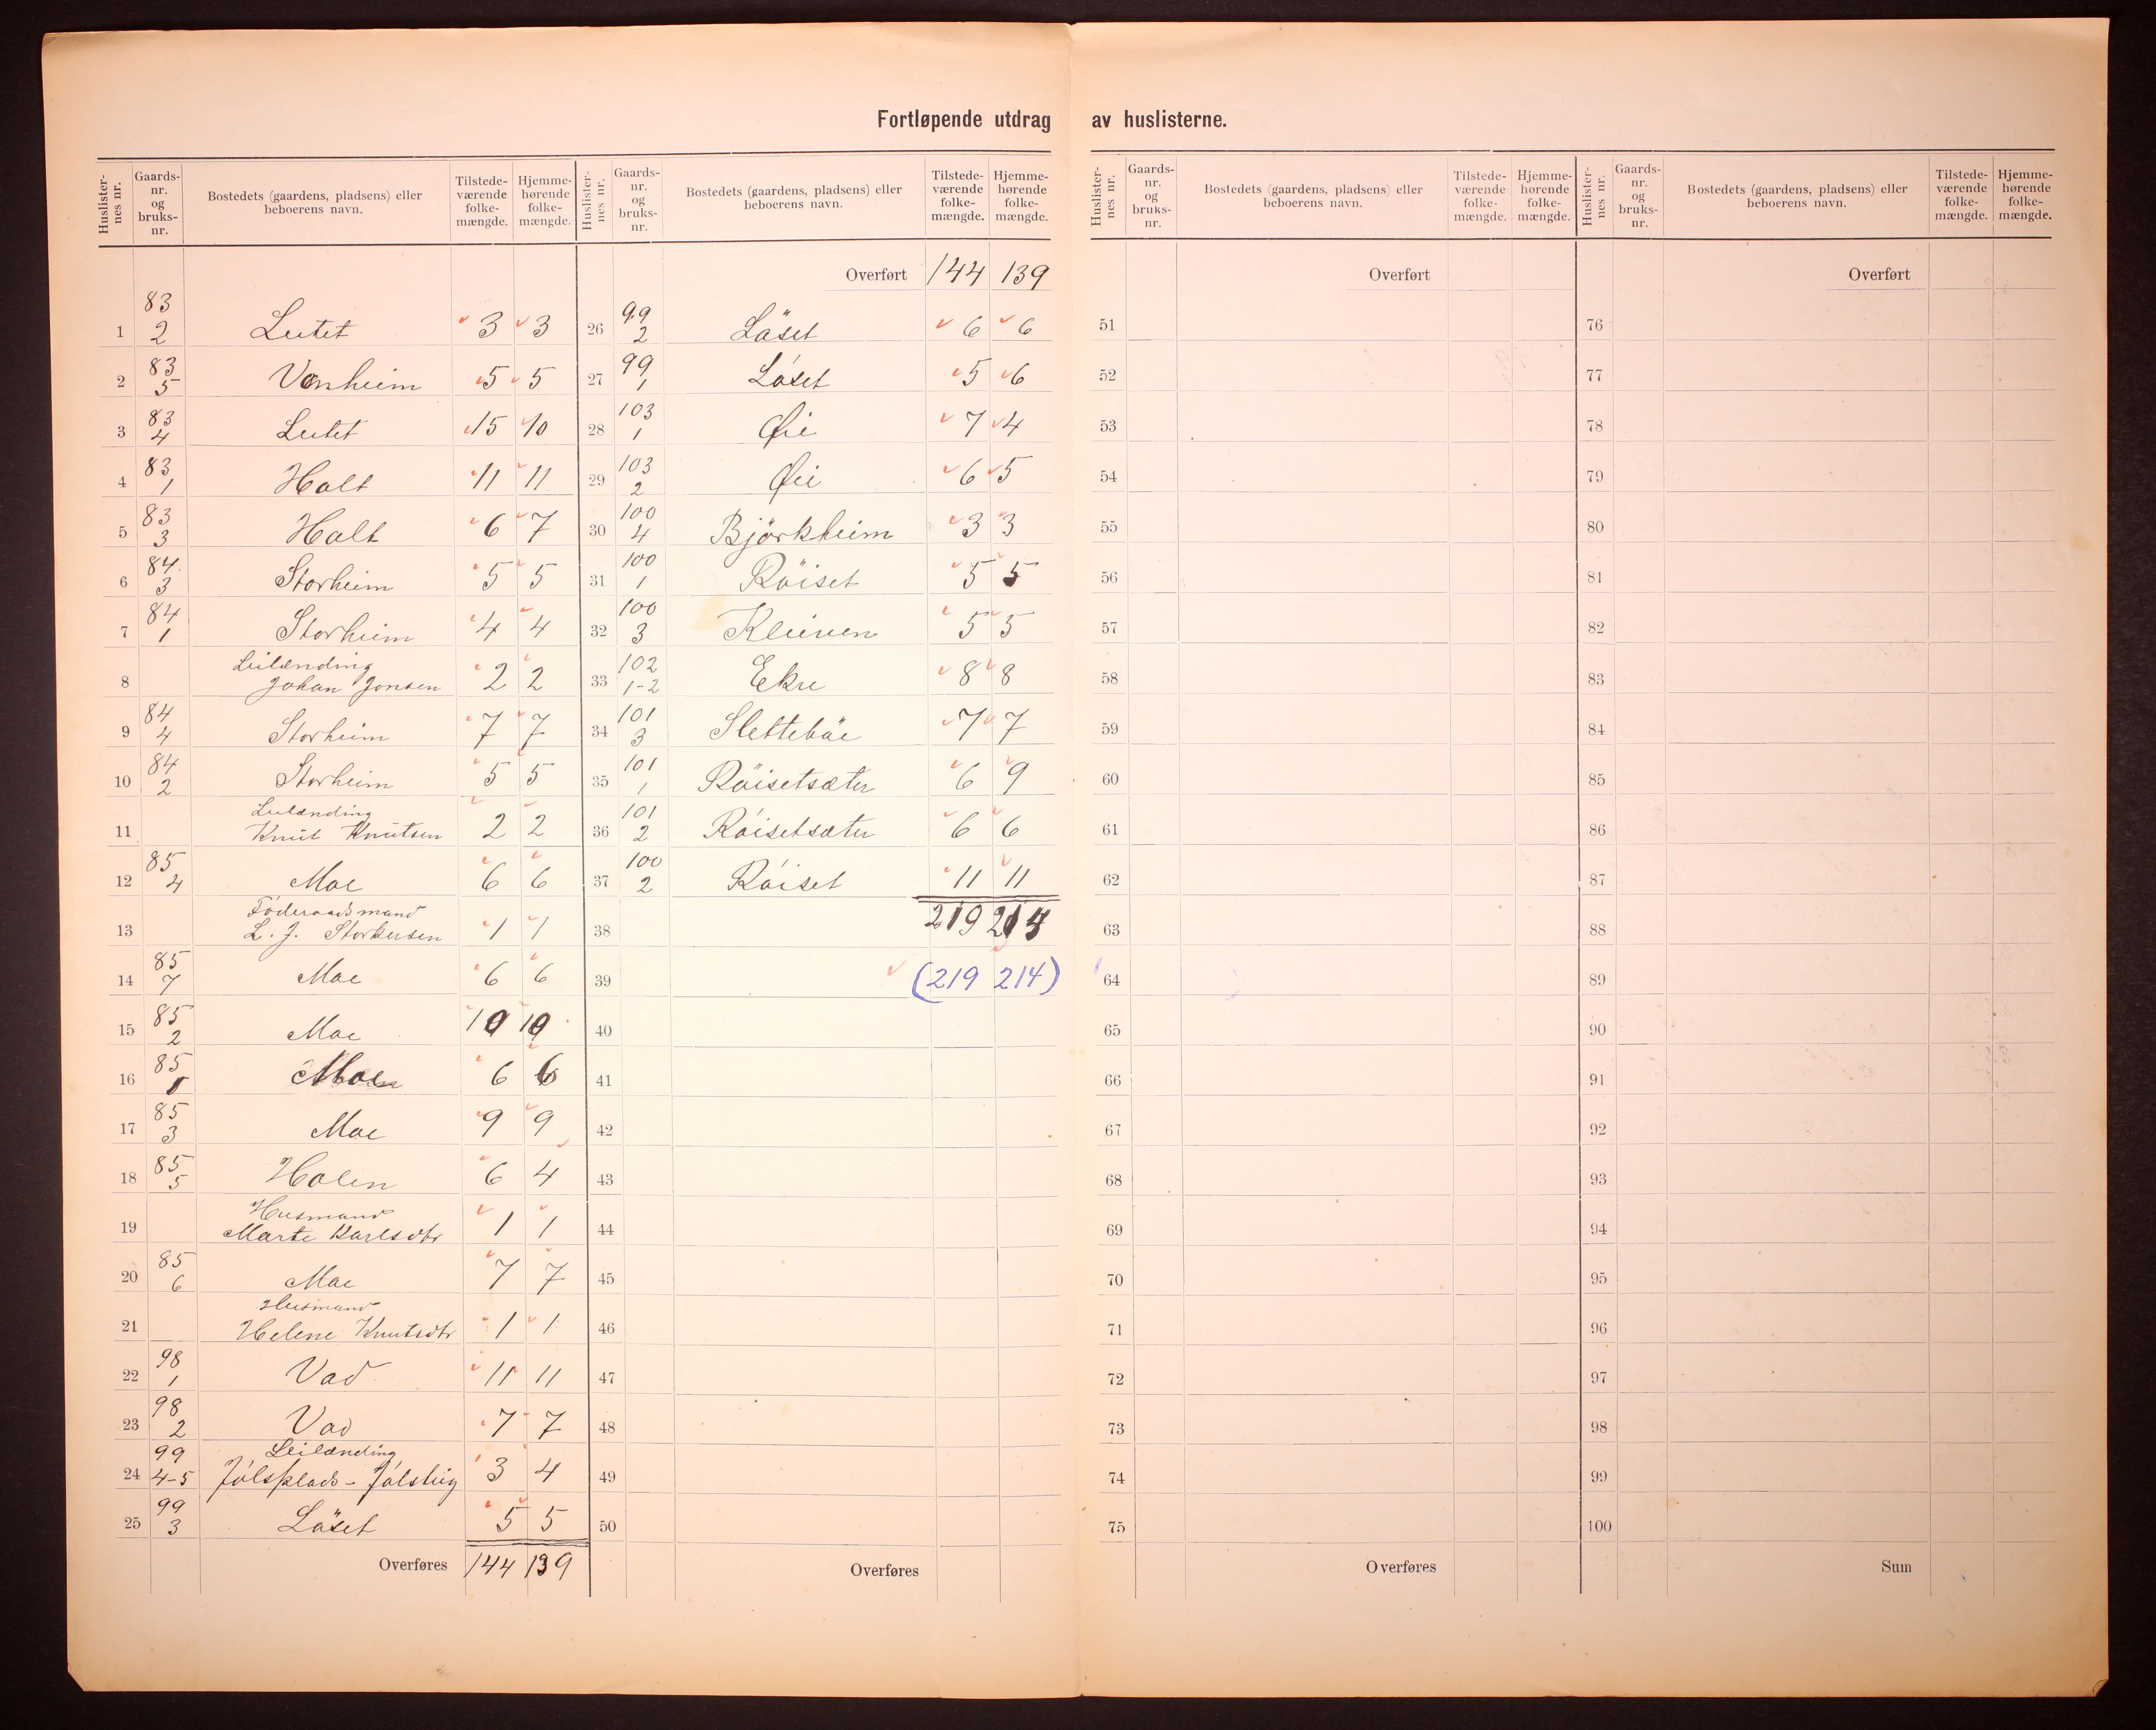 Fortløpende utdrag av huslisterne.
Huslisternes nr. Gaards-nr. og bruks-nr. Bostedets (gaardens, pladsens) eller beboerens navn. Tilstedeværende folkemængde. Hjemmehørende folkemængde.
1 83 2 Lutet 3 3
2 83 5 Vonheim 5 5
3 83 4 Lutet 15 10
4 83 1 Holt 11 11
5 83 3 Holt 6 7
6 84 3 Storheim 5 5
7 84 1 Storheim 4 4
8 Leilænding Johan Jonsen 2 2
9 84 4 Storheim 7 7
10 84 2 Storheim 5 5
11 Leilænding Knut Knutsen 2 2
12 85 4 Moe 6 6
13 Föderaadsmand L. J. Storkersen 1 1
14 85 7 Moe 6 6
15 85 2 Moe 10 10
16 85 1 Moen 6 6
17 85 3 Moe 9 9
18 85 5 Holen 6 4
19 Husmand Marte Karlsdtr 1 1
20 85 6 Moe 7 7
21 Husmand Helene Knutsdtr 1 1
22 98 1 Vad 11 11
23 98 2 Vad 7 7
24 99 4-5 Leilænding Jölsplads - Jölstüg 3 4
25 99 3 Löset 5 5
Overføres 144 139
Huslisternes nr. Gaards-nr. og bruks-nr. Bostedets (gaardens, pladsens) eller beboerens navn. Tilstedeværende folkemængde. Hjemmehørende folkemængde.
Overført 144 139
26 99 2 Löset 6 6
27 99 1 Löset 5 6
28 103 1 Øie 7 4
29 103 2 Øie 6 5
30 100 4 Björkheim 3 3
31 100 1 Röiset 5 5
32 100 3 Kleiven 5 5
33 102 1-2 Ekre 8 8
34 101 3 Slettebäe 7 7
35 101 1 Röisetsæter 6 9
36 101 2 Röisetsæter 6 6
37 100 2 Röiset 11 11
38 219 214
39 (219 214)
40
41
42
43
44
45
46
47
48
49
50
Overføres
Huslisternes nr. Gaards-nr. og bruks-nr. Bostedets (gaardens, pladsens) eller beboerens navn. Tilstedeværende folkemængde. Hjemmehørende folkemængde.
Overført
51
52
53
54
55
56
57
58
59
60
61
62
63
64
65
66
67
68
69
70
71
72
73
74
75
Overføres
Huslisternes nr. Gaards-nr. og bruks-nr. Bostedets (gaardens, pladsens) eller beboerens navn. Tilstedeværende folkemængde. Hjemmehørende folkemængde.
Overført
76
77
78
79
80
81
82
83
84
85
86
87
88
89
90
91
92
93
94
95
96
97
98
99
100
Sum